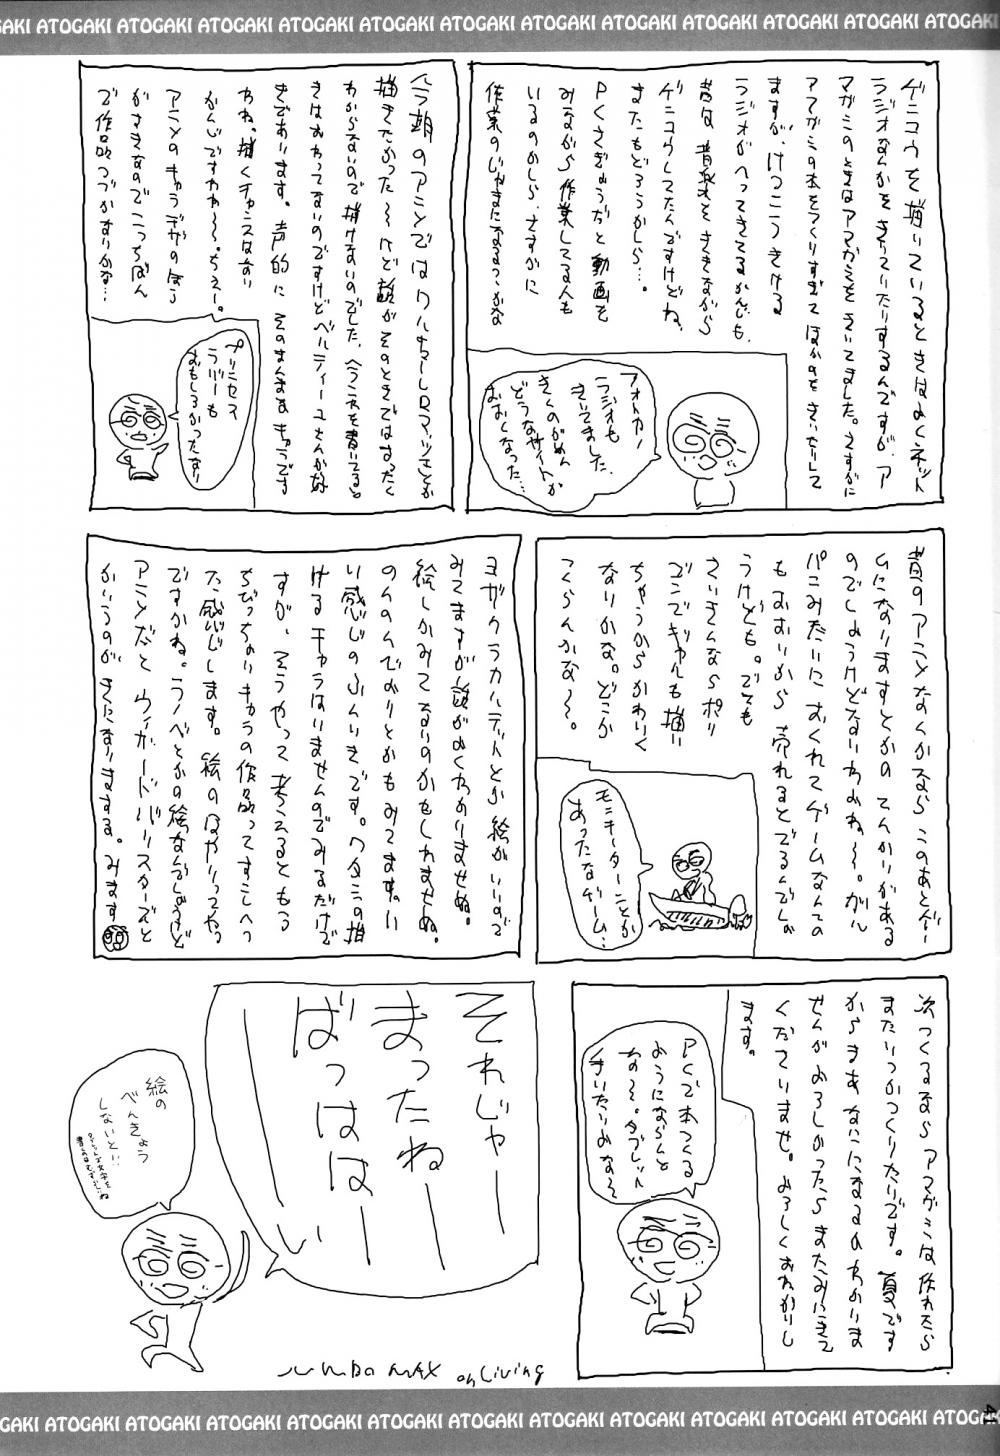 ATOGAKI ATOGAKI ATOGAKI ATOGAKI ATOGAKI ATOGAKI ATOGAKI ATOGAKI
ゲンコウを描いているときはよくネット
ラジオなんかをきいていたりするんですが、ア
マガミのときはアマガミをきいてました。さすがに
アマガミの本をつくりすぎてほかのをきいたりして
ますが、けっこうきける
ラジオがへってきてるかんじも、
昔は音楽をききながら
ゲンコウしてたんですけどね、
またもどろうかしら…。
PCさぎょうだと動画を
みながら作業してる人も
いるのかしら、さすがに
作業のじゃまになるっつかな
フォトカノ
ラジオも
きいてました、
きくのがめん
どうなサイトが
おおくなった…
今期のアニメではワルキューレロマンツェとか
描きたかった〜けど話がそのときではまったく
わからないので描けないのでした、
きはおわってないのですけどベルティーユさんが好
きであります。声的にそのまんまなキャラです
わね。描くチャンスはない
かんじですわ〜。ちぇー。
アニメのキャラデザのほう
がすきなのでこっちばん
で作品つづかないかな…
プリンセス
ラバーも
おもしろかったなり
昔のアニメなんかなら このあとゲー
ムになりますとかの てんかいがある
のでしょうけどないわよね〜。ガル
パンみたいにおくれてゲームなんての
もはやいから 売れるとでるんでしょ
うけども。でも
さいきんなら ポリ
ゴンでギャルも描い
ちゃうから かわいく
ないかな。どこか
つくらんかな〜〜。
モンキーターンとか
あったなゲーム…
ヨザクラカルテットとか絵がいいので
みてますが話がよくわかりませぬ。
絵しかみてないのかもしれませぬ。
のんのんびよりとかもみてます。い
い感じのふんいきです。ワタシの描
けるキャラはいませんのでみるだけで
すが、そうやって考えるともう
ちびっちゃいキャラの作品ってすこしへっ
た感じします。絵のはやりってやつ
ですかね。ラノベとかの絵なんでしょうけど
アニメだとウィザードバリスターズと
かいうのがきになりまする。みます
次つくるなら アマガミは作れたら
またいつかつくりたいです。夏です
からさあなにになるかわかりま
せんがよろしかったらまたみにきて
くださいませ。よろしくおねがいし
ます。
PCで本つくる
ようにならんと
な〜。タブレット
それじゃーー
まったねーー
ばっははーーい
絵の
べんきょう
しないと!!
JUMBO MAX on Living
GAKI ATOGAKI ATOGAKI ATOGAKI ATOGAKI ATOGAKI ATOGAKI ATOGAKI
41